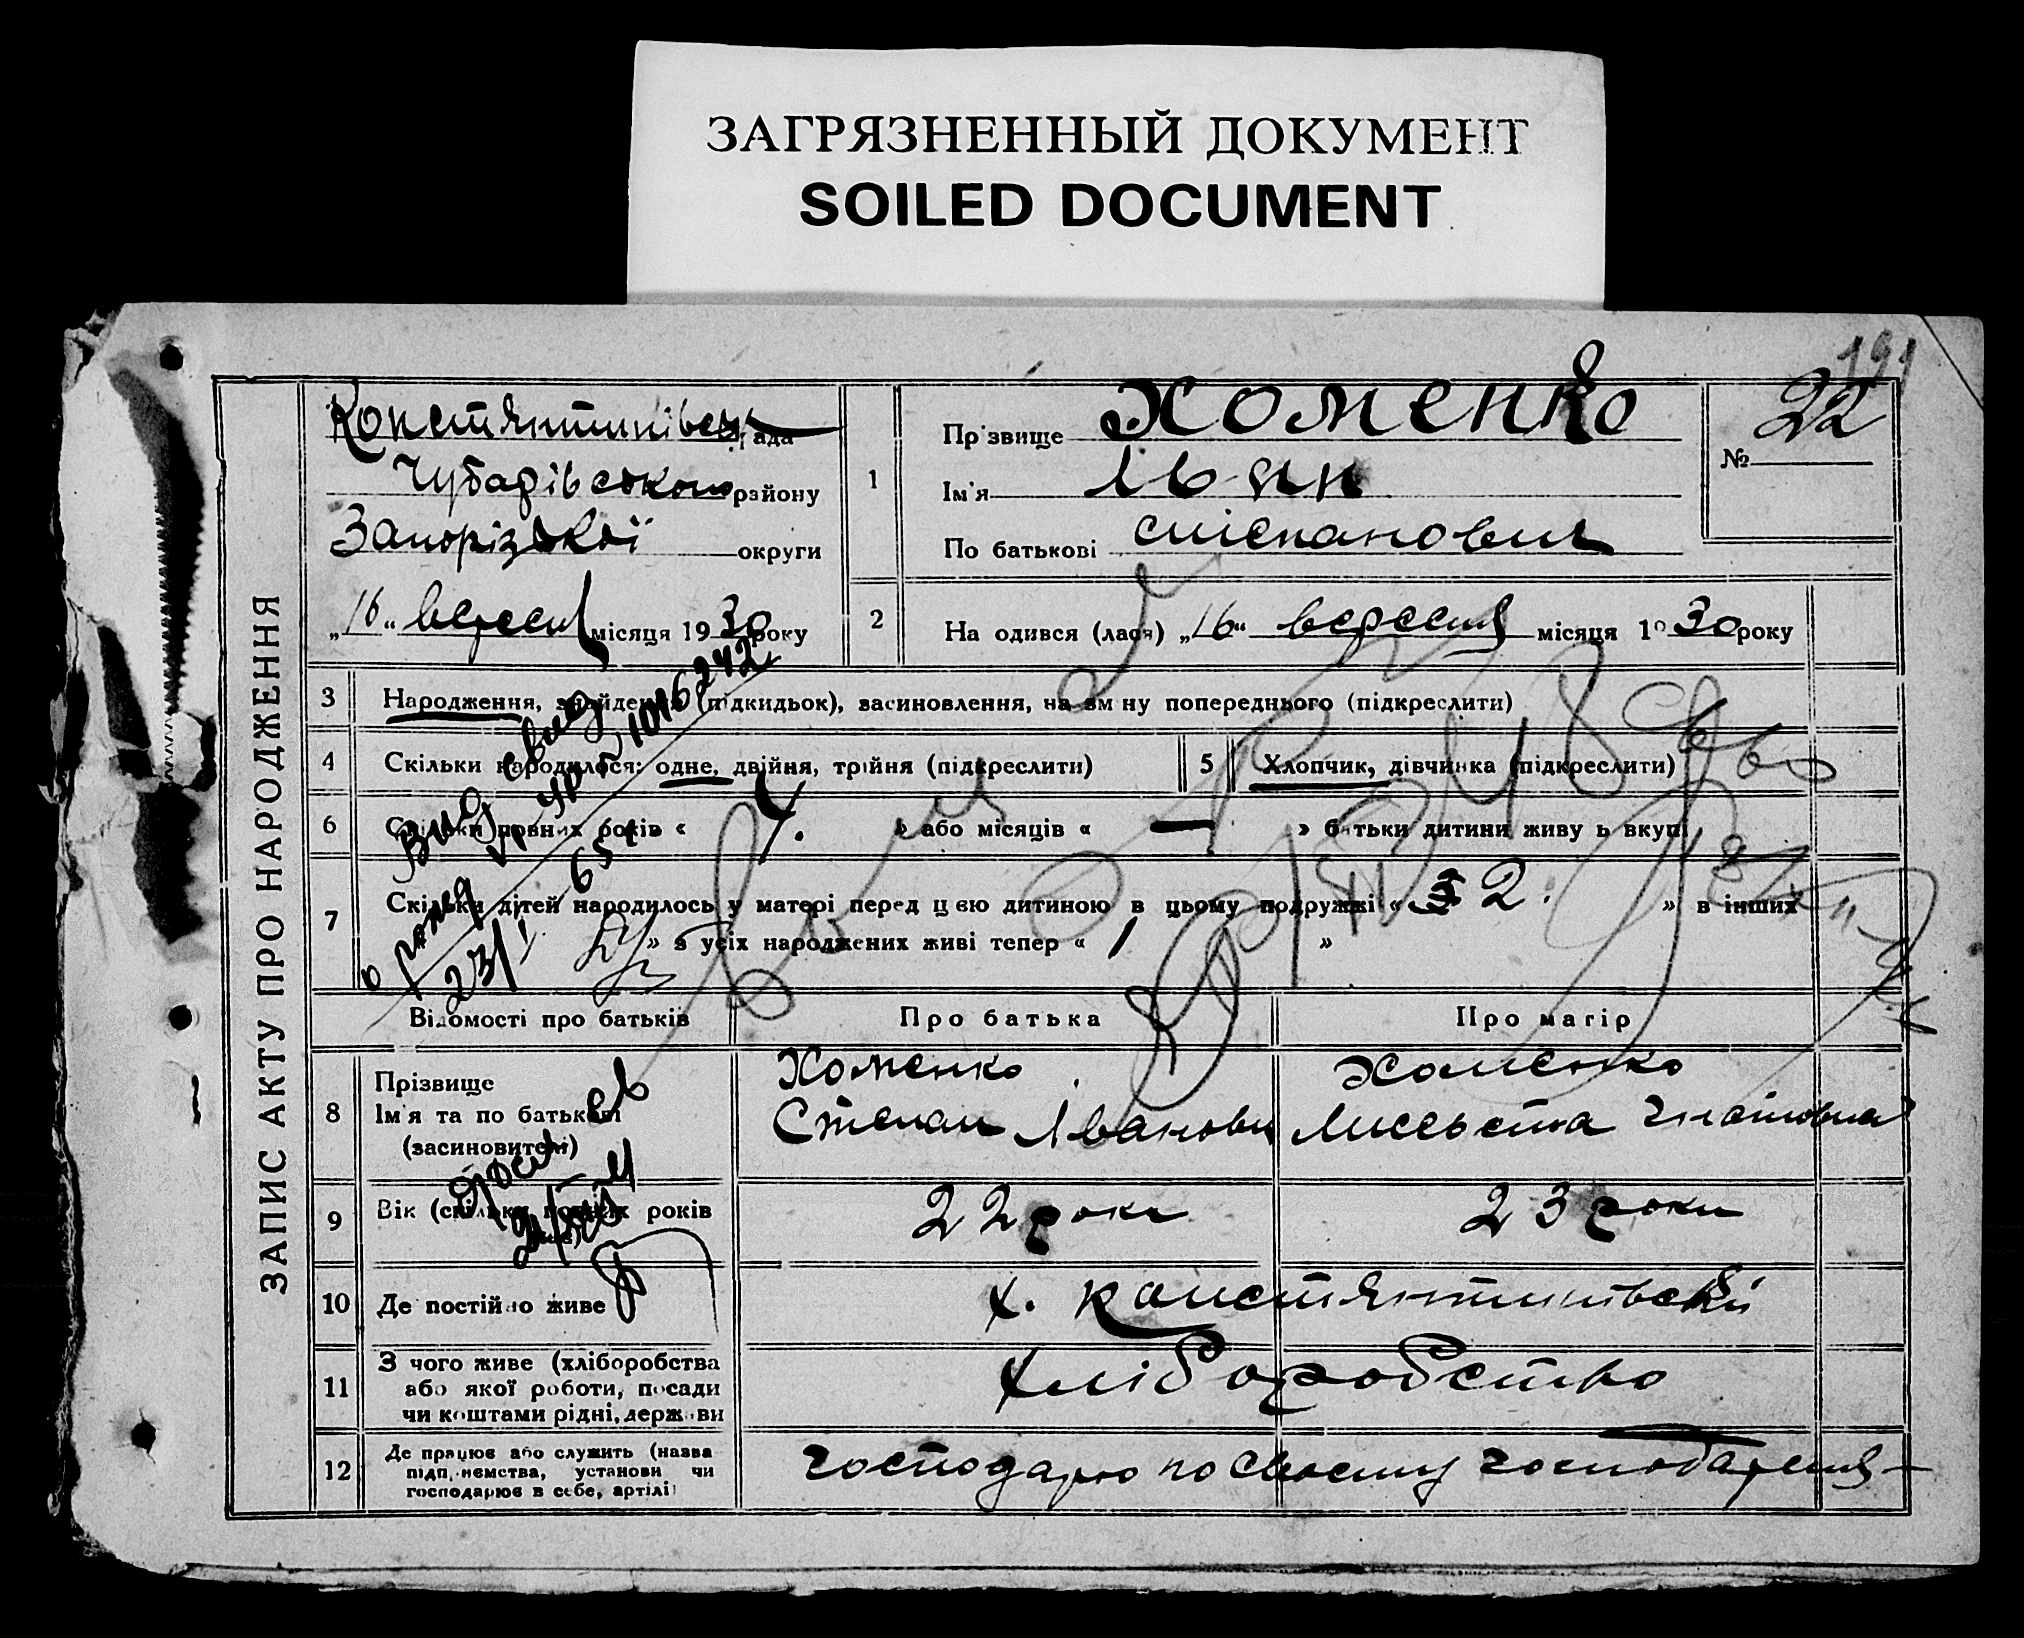 ЗАГРЯЗНЕННЫЙ ДОКУМЕНТ
SOILED DOCUMENT
191
ЗАПИС АКТУ ПРО НАРОДЖЕННЯ
Констянтинівськ рада
Чубарівського району
Запорізької округи
„16“ вересня місяця 1930 року
1
Прізвище Хоменко
Ім'я Іван
По батькові Степанович
№ 22
2
На одився (лася) „16“ вересня місяця 1930 року
3 Народження, знайдення (підкидьок), засиновлення, на зміну попереднього (підкреслити)
4 Скільки народилося: одне, двійня, трійня (підкреслити)
5 Хлопчик, дівчинка (підкреслити)
6 Скільки повних років « 4. » або місяців « — » батьки дитини живуть вкупі
7 Скільки дітей народилось у матері перед цією дитиною в цьому подружжі « 2. » в інших
» з усіх народжених живі тепер « 1 »
Відомості про батьків
Про батька
Про матір
8 Прізвище
Ім'я та по батькові
(засиновителі)
Хоменко
Степан Іванови
Хоменко
Гнатовна
9 Вік (скільки повних років має)
22 роки
23 роки
10 Де постійно живе
х. Констянтинівский
11 З чого живе (хліборобства
або якої роботи, посади
чи коштами рідні, держави
Хліборобство
12 Де працює або служить (назва
підприємства, установи чи
господарює в себе, артілі)
господарю по своєму